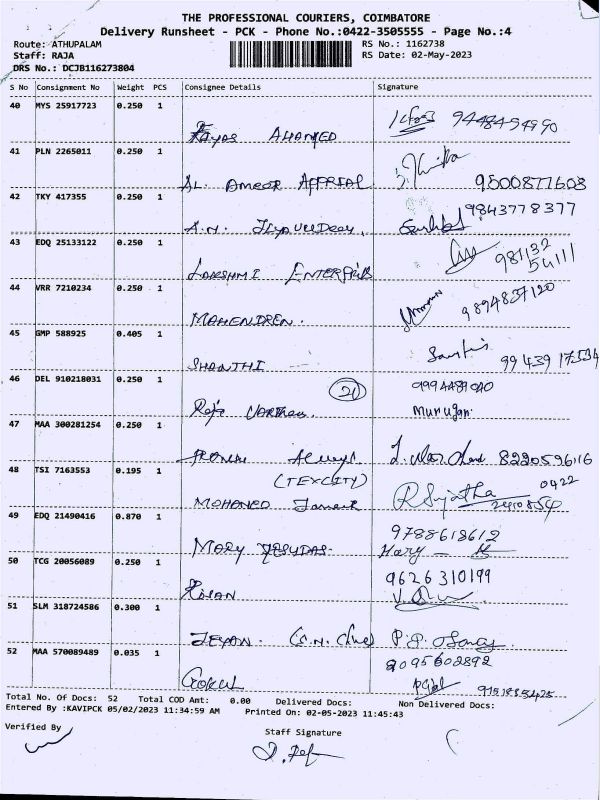 THE PROFESSIONAL COURIERS, COIMBATORE
Delivery Runsheet - PCK - Phone No.:0422-3505555 - Page No.:4
Route: ATHUPALAM RS No.: 1162738
Staff: RAJA RS Date: 02-May-2023
DRS No.: DCJB116273804
S No Consignment No Weight PCS Consignee Details Signature
40 MYS 25917723 0.250 1
AHAMED
41 PLN 2265011 0.250 1
AL. AMEER 9500877608
42 TKY 417355 0.250 1
9843778377
A.N.
43 EDQ 25133122 0.250 1
98132
54111
LAKSHMI ENTERPRISES
44 VRR 7210234 0.250 1
9894837120
MAHENDREN.
45 GMP 588925 0.405 1
SHANTHI 99439 17534
46 DEL 910218031 0.250 1
21 9994489040
Raja VARTHAN. Murugan.
47 MAA 300281254 0.250 1
8220596116
48 TSI 7163553 0.195 1
(TEXCITY)
MOHAMED R Sujatha 0422
49 EDQ 21490416 0.870 1
9788618612
MARY YESUDAS. Mary
50 TCG 20056089 0.250 1
9626310199
KHAN
51 SLM 318724586 0.300 1
JEYAN. P.P.
52 MAA 570089489 0.035 1
9095602892
GOKUL
Total No. Of Docs: 52 Total COD Amt: 0.00 Delivered Docs: Non Delivered Docs:
Entered By :KAVIPCK 05/02/2023 11:34:59 AM Printed On: 02-05-2023 11:45:43
Verified By Staff Signature